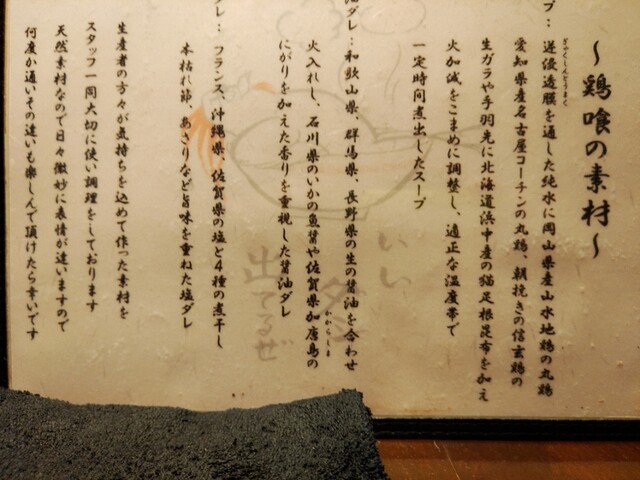 ～鶏喰の素材～
プ：逆浸透膜を通した純水に岡山県産山水地鶏の丸鶏
ぎゃくしんとうまく
愛知県産名古屋コーチンの丸鶏、朝挽きの信玄鶏の
生ガラや手羽先に北海道浜中産の猫足根昆布を加え
火加減をこまめに調整し、適正な温度帯で
一定時間煮出したスープ
油ダレ：和歌山県、群馬県、長野県の生の醤油を合わせ
火入れし、石川県のいかの魚醤や佐賀県加唐島の
かからしま
にがりを加えた香りを重視した醤油ダレ
ダレ：フランス、沖縄県、佐賀県の塩と4種の煮干し
本枯れ節、あさりなど旨味を重ねた塩ダレ
生産者の方々が気持ちを込めて作った素材を
スタッフ一同大切に使い調理をしております
天然素材なので日々微妙に表情が違いますので
何度か通いその違いも楽しんで頂けたら幸いです
出てるぜ